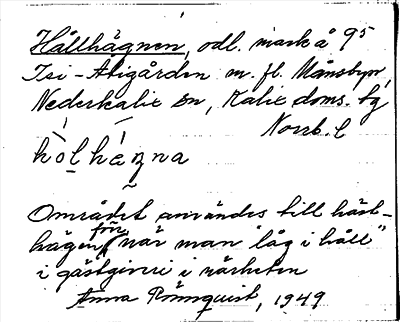 Hållhägnen, odl. mark å 9⁵
Isi-Abigården m. fl. Månsbyn,
Nederkalix sn, Kalix doms. bg
Norrb. l
hòlhɛ́ŋna
Området användes till häst-
hägen för, när man "låg i håll"
i gästgiveri i närheten
Anna Rönnquist, 1949